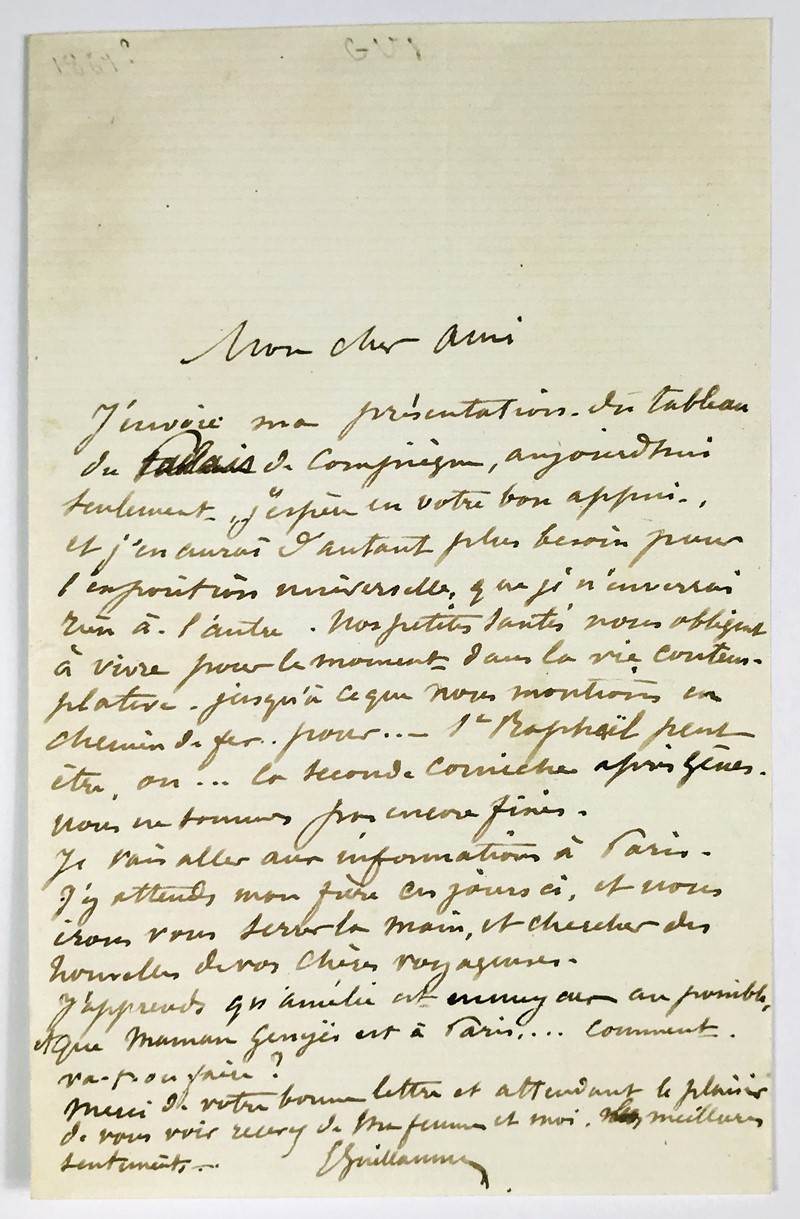 1867?
Mon cher ami
J'envoie ma présentation du tableau
du palais de Compiègne, aujourd'hui
seulement, j'espère en votre bon appui,
et j'en aurai d'autant plus besoin pour
l'exposition universelle, que je n'enverrai
rien à l'autre. Nos petites santés nous obligent
à vivre pour le moment dans la vie contem-
plative. jusqu'à ce que nous montions en
chemin de fer.. pour... St Raphaël peut
être, ou ... la seconde corniche après Gênes.
nous ne sommes pas encore fixés.
Je vais aller aux informations à Paris.
J'y attends mon frère ces jours ci, et nous
irons vous serrer la main, et chercher des
nouvelles de vos chères voyageuses.
J'apprends qu'amélie est au possible,
et que Maman est à Paris,... comment
va-t-on faire ?
Merci de votre bonne lettre et attendant le plaisir
de vous voir recevez de Ma femme et moi. meilleures
sentiments..
Guillaume